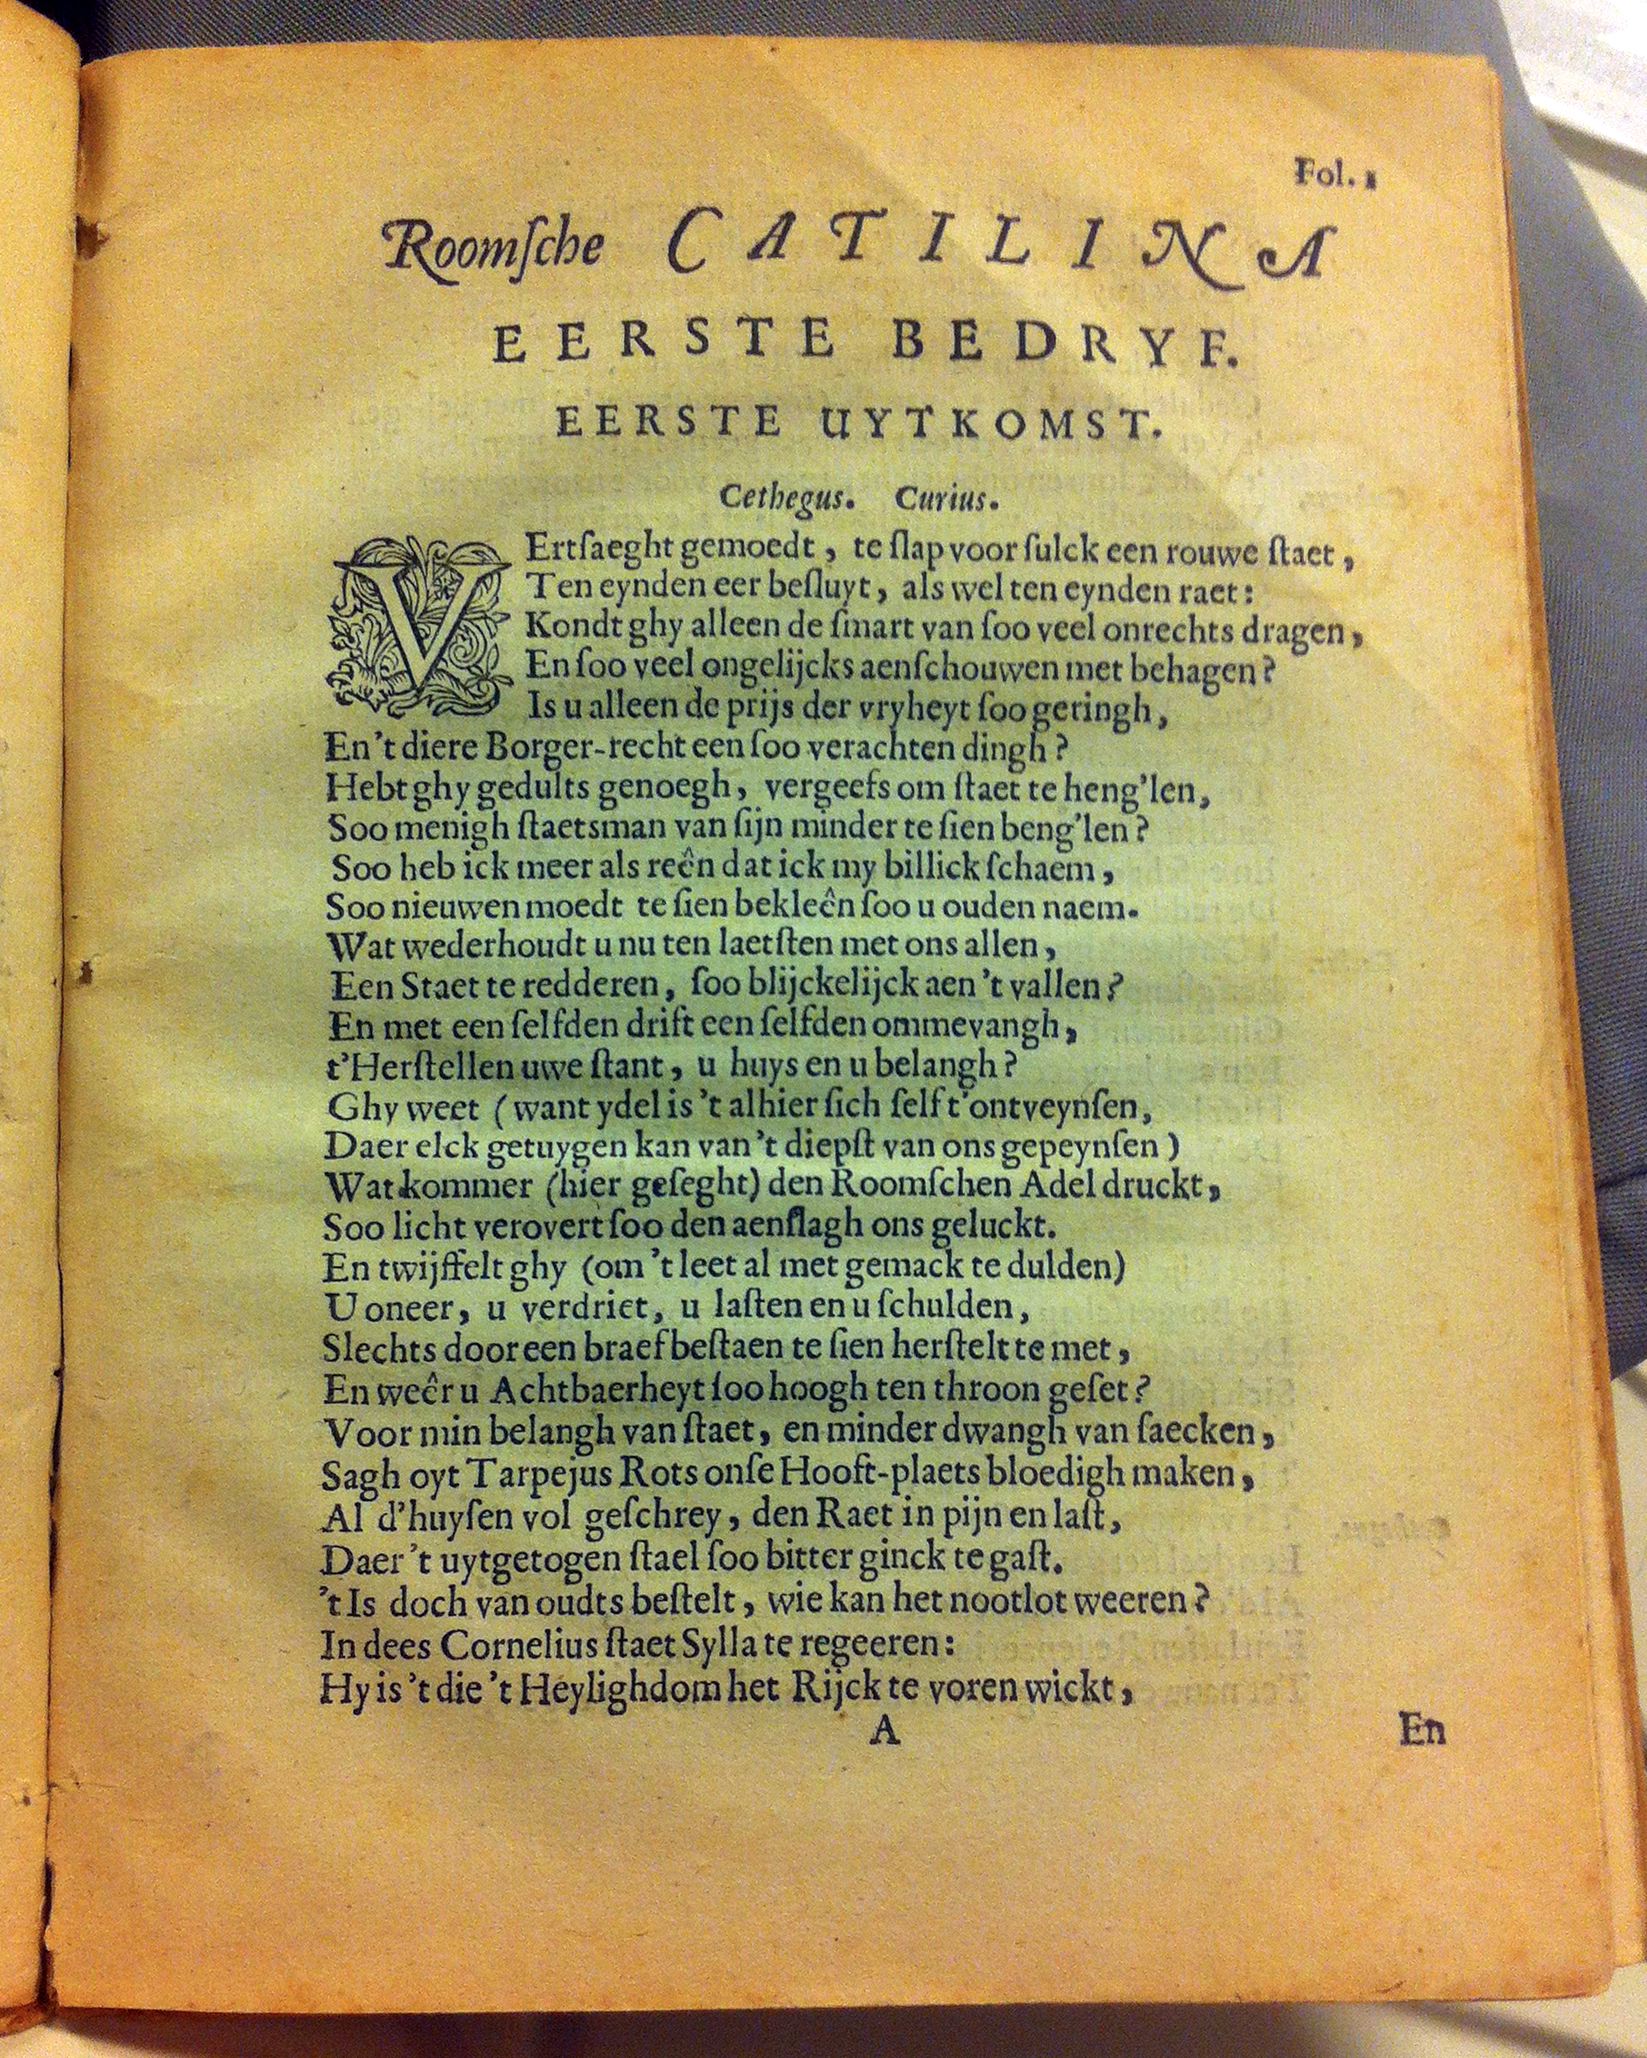 Fol. 1
Roomſche CATILINA
EERSTE BEDRYF.
EERSTE UYTKOMST.
Cethegus. Curius.
VErtſaeght gemoedt, te ſlap voor ſulck een rouwe ſtaet,
Ten eynden eer beſluyt, als wel ten eynden raet:
Kondt ghy alleen de ſmart van ſoo veel onrechts dragen,
En ſoo veel ongelijcks aenſchouwen met behagen?
Is u alleen de prijs der vryheyt ſoo geringh,
En 't diere Borger-recht een ſoo verachten dingh?
Hebt ghy gedults genoegh, vergeefs om ſtaet te heng'len,
Soo menigh ſtaetsman van ſijn minder te ſien beng'len?
Soo heb ick meer als reên dat ick my billick ſchaem,
Soo nieuwen moedt te ſien bekleên ſoo u ouden naem.
Wat wederhoudt u nu ten laetſten met ons allen,
Een Staet te redderen, ſoo blijckelijck aen 't vallen?
En met een ſelfden drift een ſelfden ommevangh,
t'Herſtellen uwe ſtant, u huys en u belangh?
Ghy weet (want ydel is 't alhier ſich ſelf t'ontveynſen,
Daer elck getuygen kan van 't diepſt van ons gepeynſen)
Wat kommer (hier geſeght) den Roomſchen Adel druckt,
Soo licht verovert ſoo den aenſlagh ons geluckt.
En twijffelt ghy (om 't leet al met gemack te dulden)
U oneer, u verdriet, u laſten en u ſchulden,
Slechts door een braef beſtaen te ſien herſtelt te met,
En weêr u Achtbaerheyt ſoo hoogh ten throon geſet?
Voor min belangh van ſtaet, en minder dwangh van ſaecken,
Sagh oyt Tarpejus Rots onſe Hooft-plaets bloedigh maken,
Al d'huyſen vol geſchrey, den Raet in pijn en laſt,
Daer 't uytgetogen ſtael ſoo bitter ginck te gaſt.
't Is doch van oudts beſtelt, wie kan het nootlot weeren?
In dees Cornelius ſtaet Sylla te regeeren:
Hy is 't die 't Heylighdom het Rijck te voren wickt,
A
En